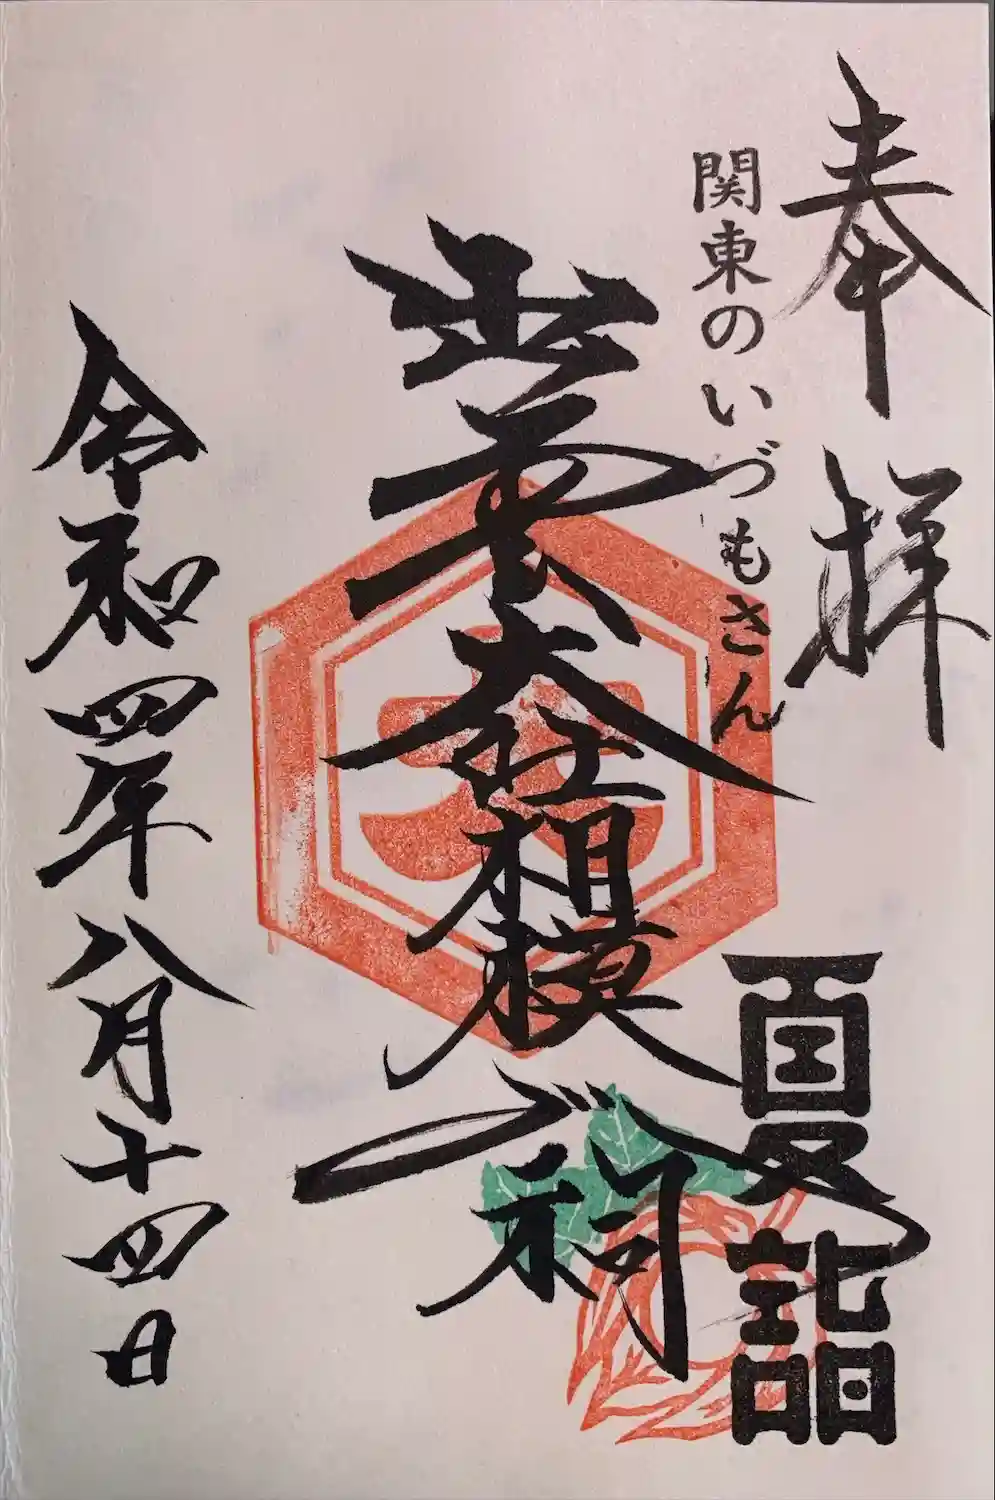 奉拝
関東のいづもさん
夏詣
出雲大社相模分祠
令和四年八月十四日